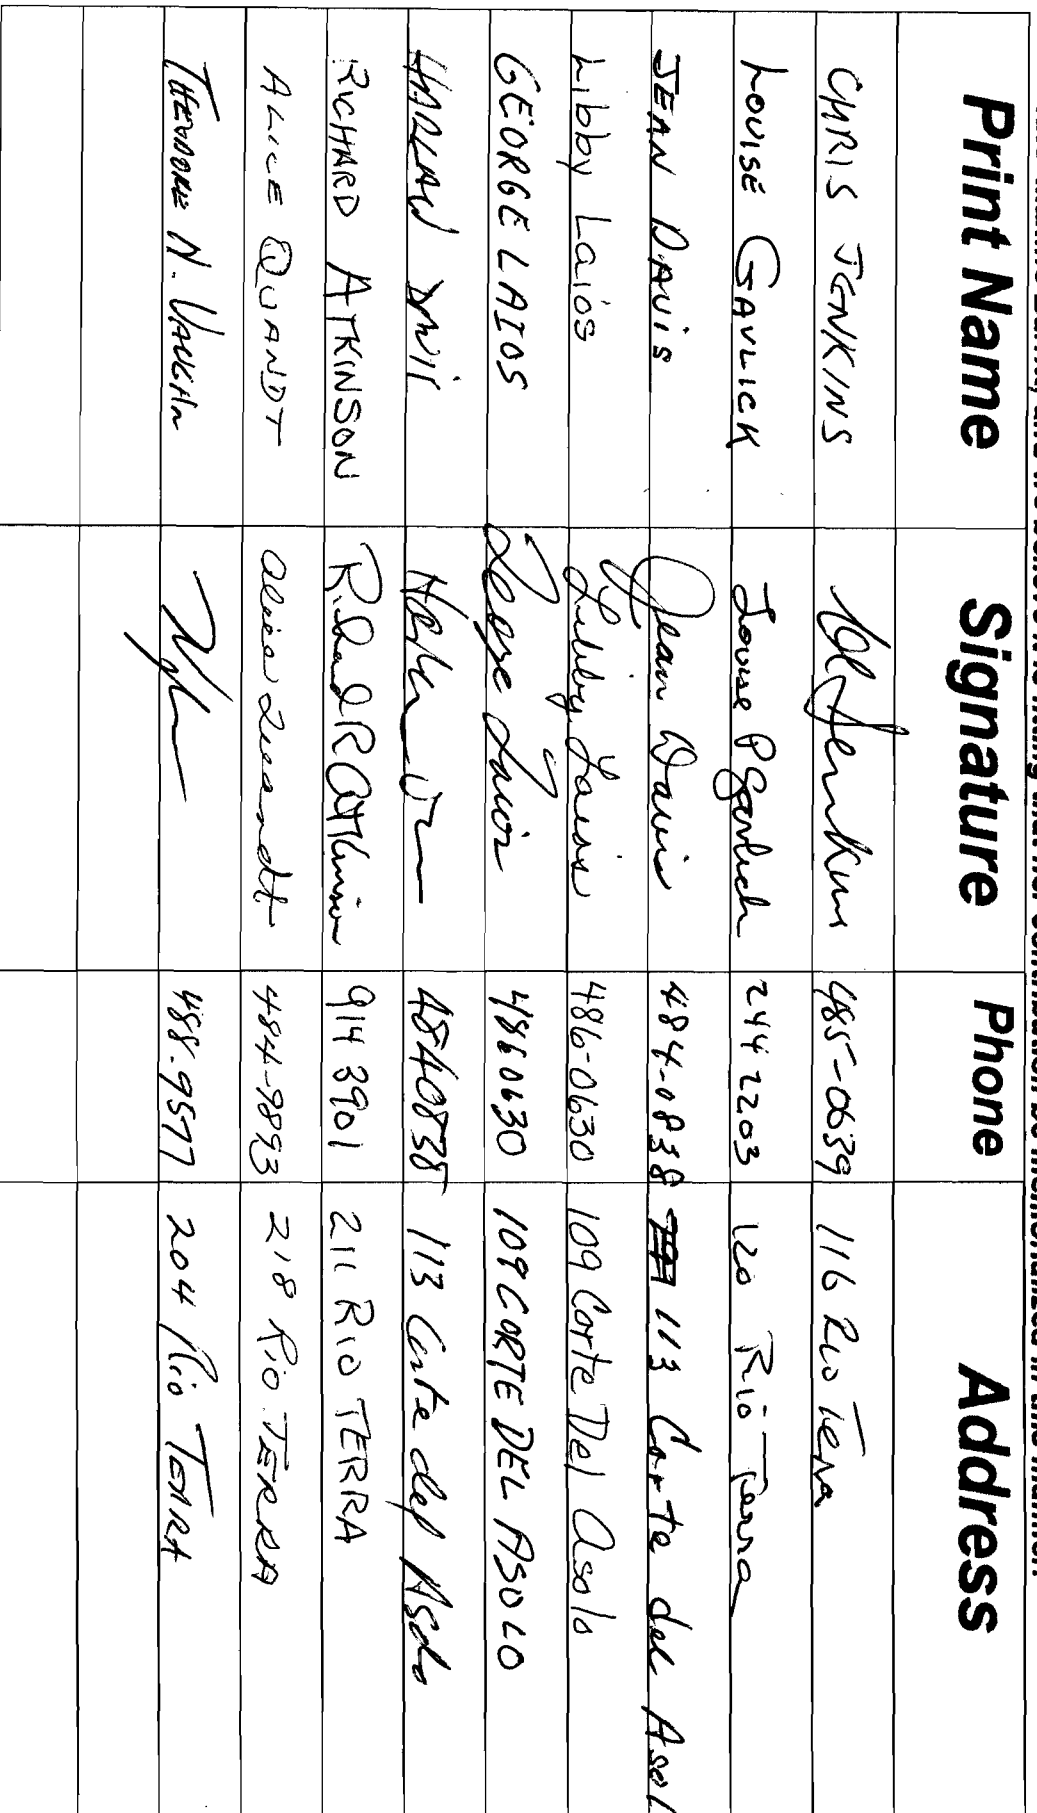 Print Name Signature Phone Address
CHRIS JENKINS Jenkins 485-0639 116 Rio Terra
LOUISE GAVLICK Louise P Gavlick 244 2203 120 Rio Terra
JEAN DAVIS Jean Davis 484-0838 113 Corte del Asol
Libby Laios Libby Laios 486-0630 109 Corte Del Asolo
GEORGE LAIOS George Laios 4860630 109 CORTE DEL ASOLO
HARLAN DAVIS 4840838 113 Corte del Asolo
RICHARD ATKINSON Richard R Atkinson 914 8901 211 RIO TERRA
ALICE QUANDT Alice Quandt 484-9893 218 RIO TERRA
THEODORE N. VAUGHN 488-9577 204 Rio TERRA